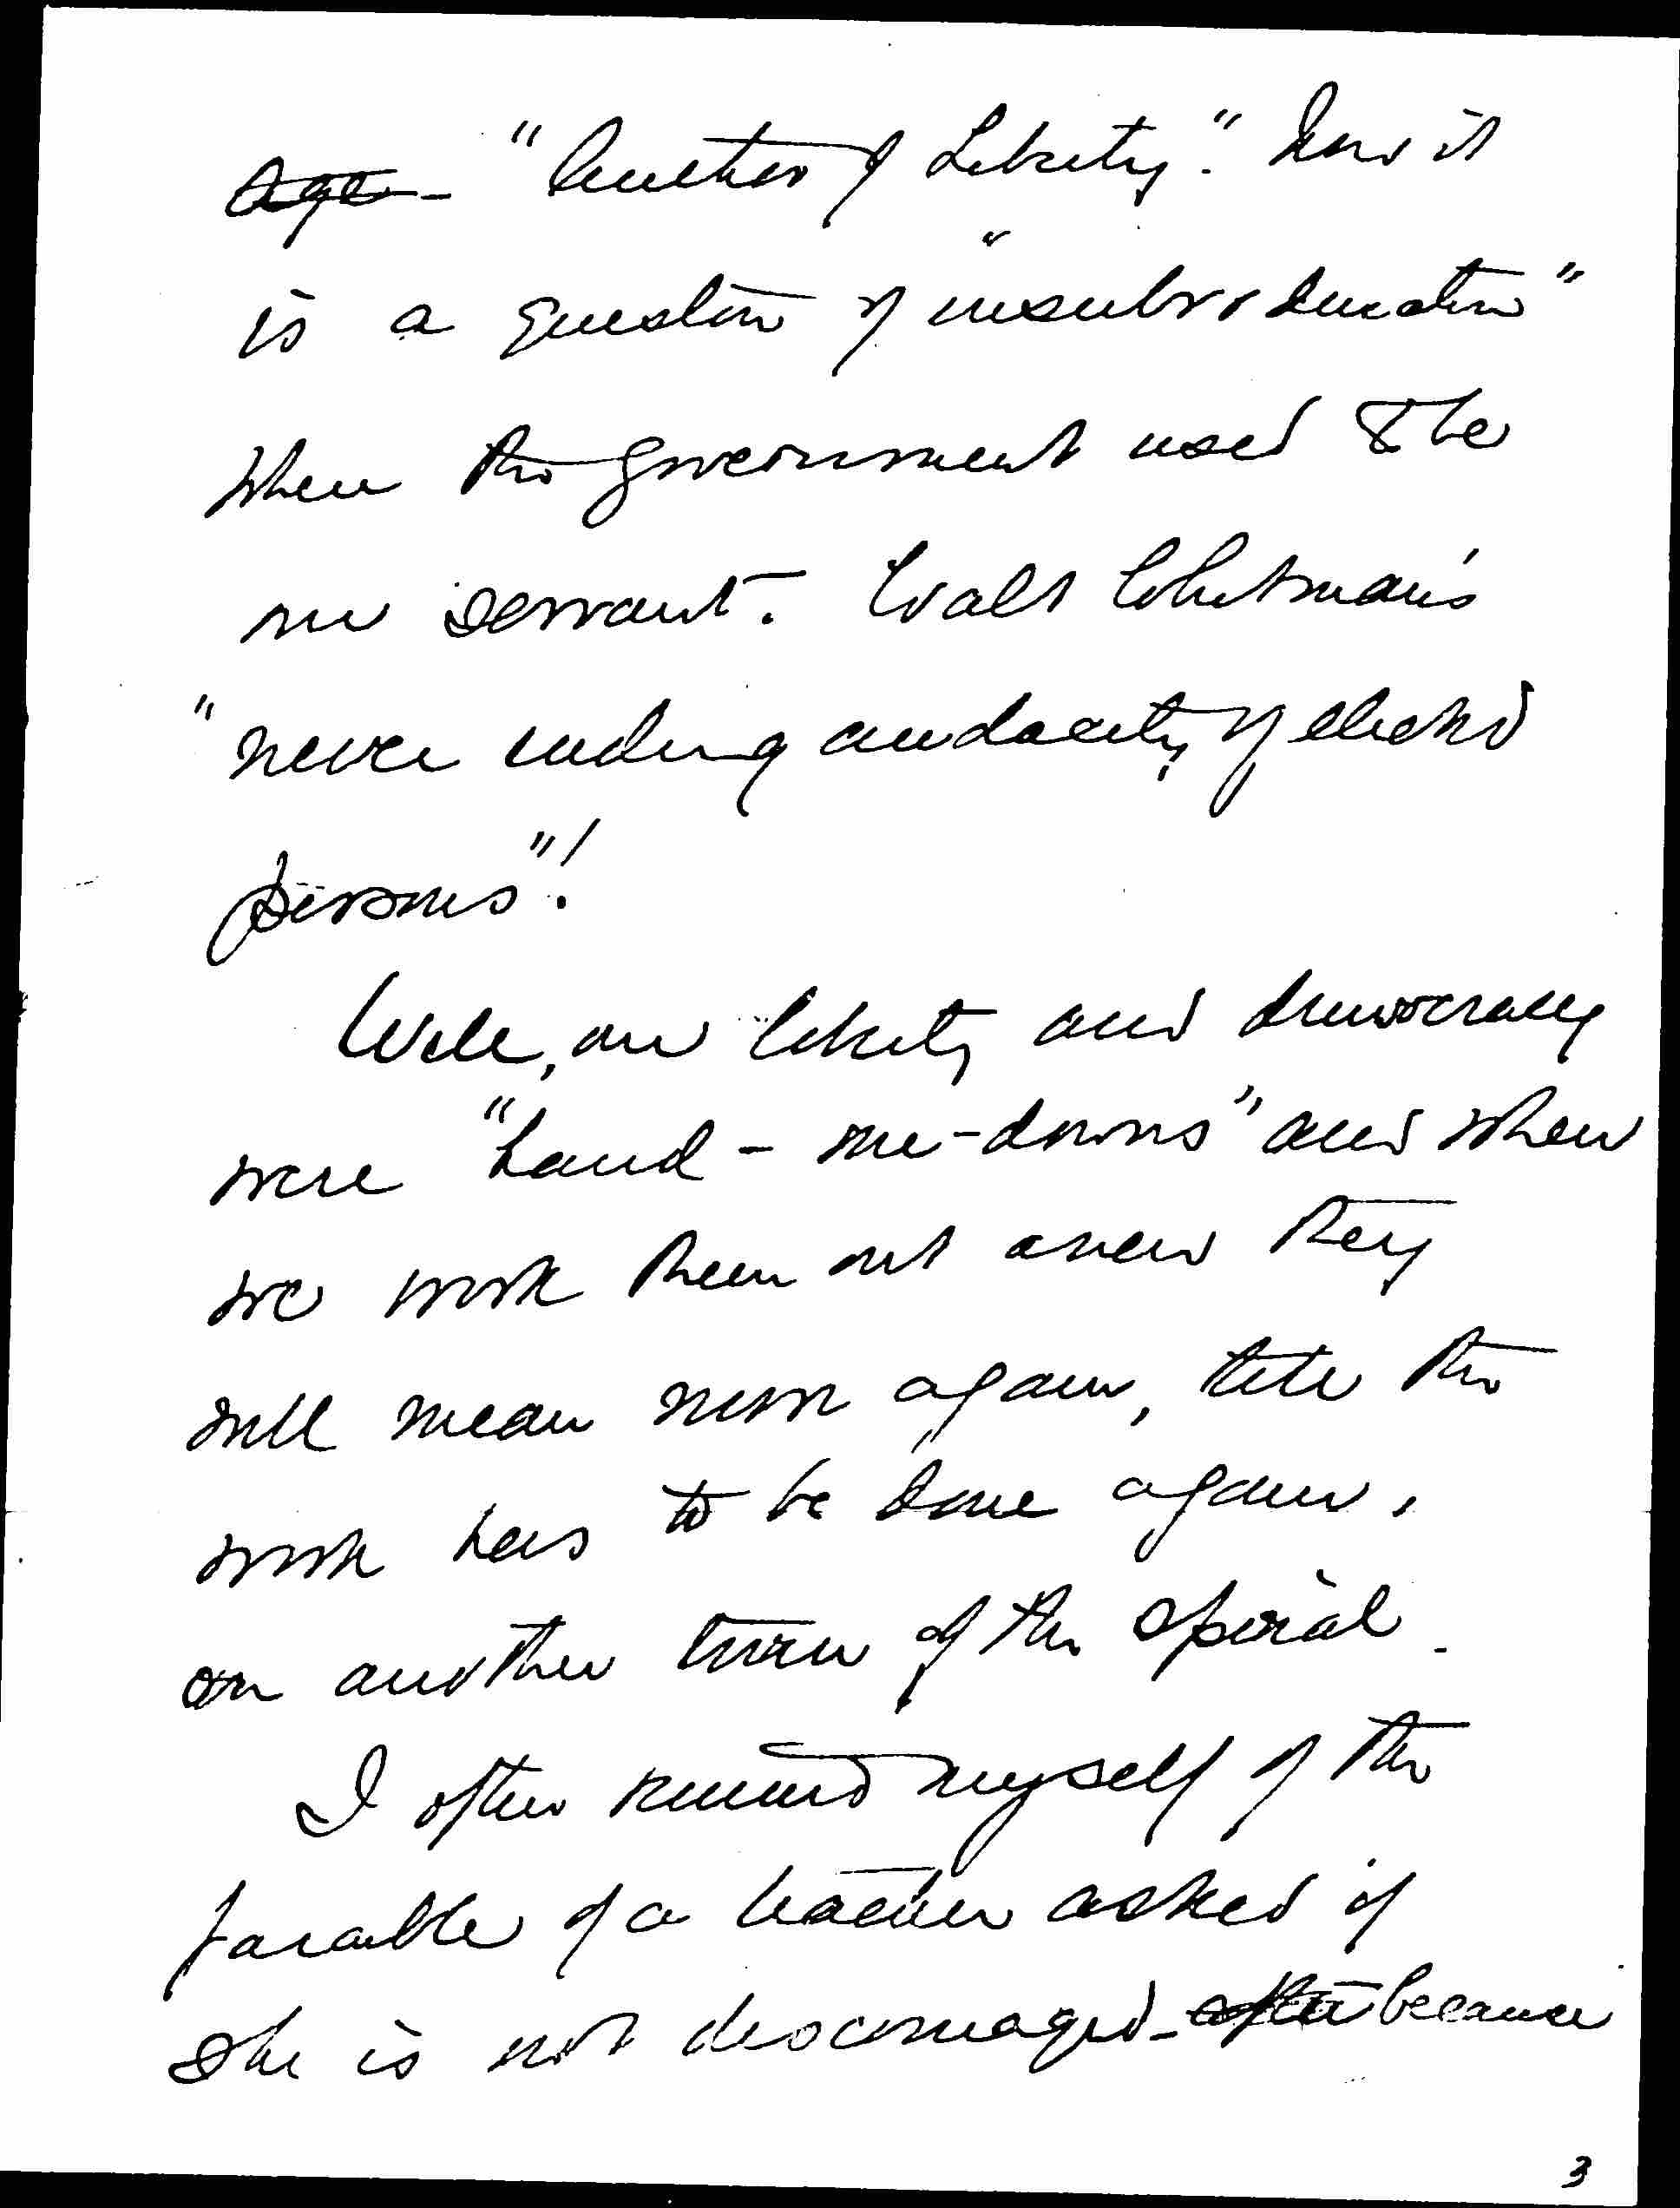 Ago - "Author of Liberty." Now it
is a question of "insubordination"
when the government used to be
our servant. Walt Whitman's
"never ending audacity of elected
persons"!
Well, our liberty and democracy
were "hand-me-downs" and when
we work them out anew they
will mean more again, till the
work has to be done again,
on another turn of the spiral.
I often remind myself of the
parable of a teacher asked if
she is not discouraged - after because
3